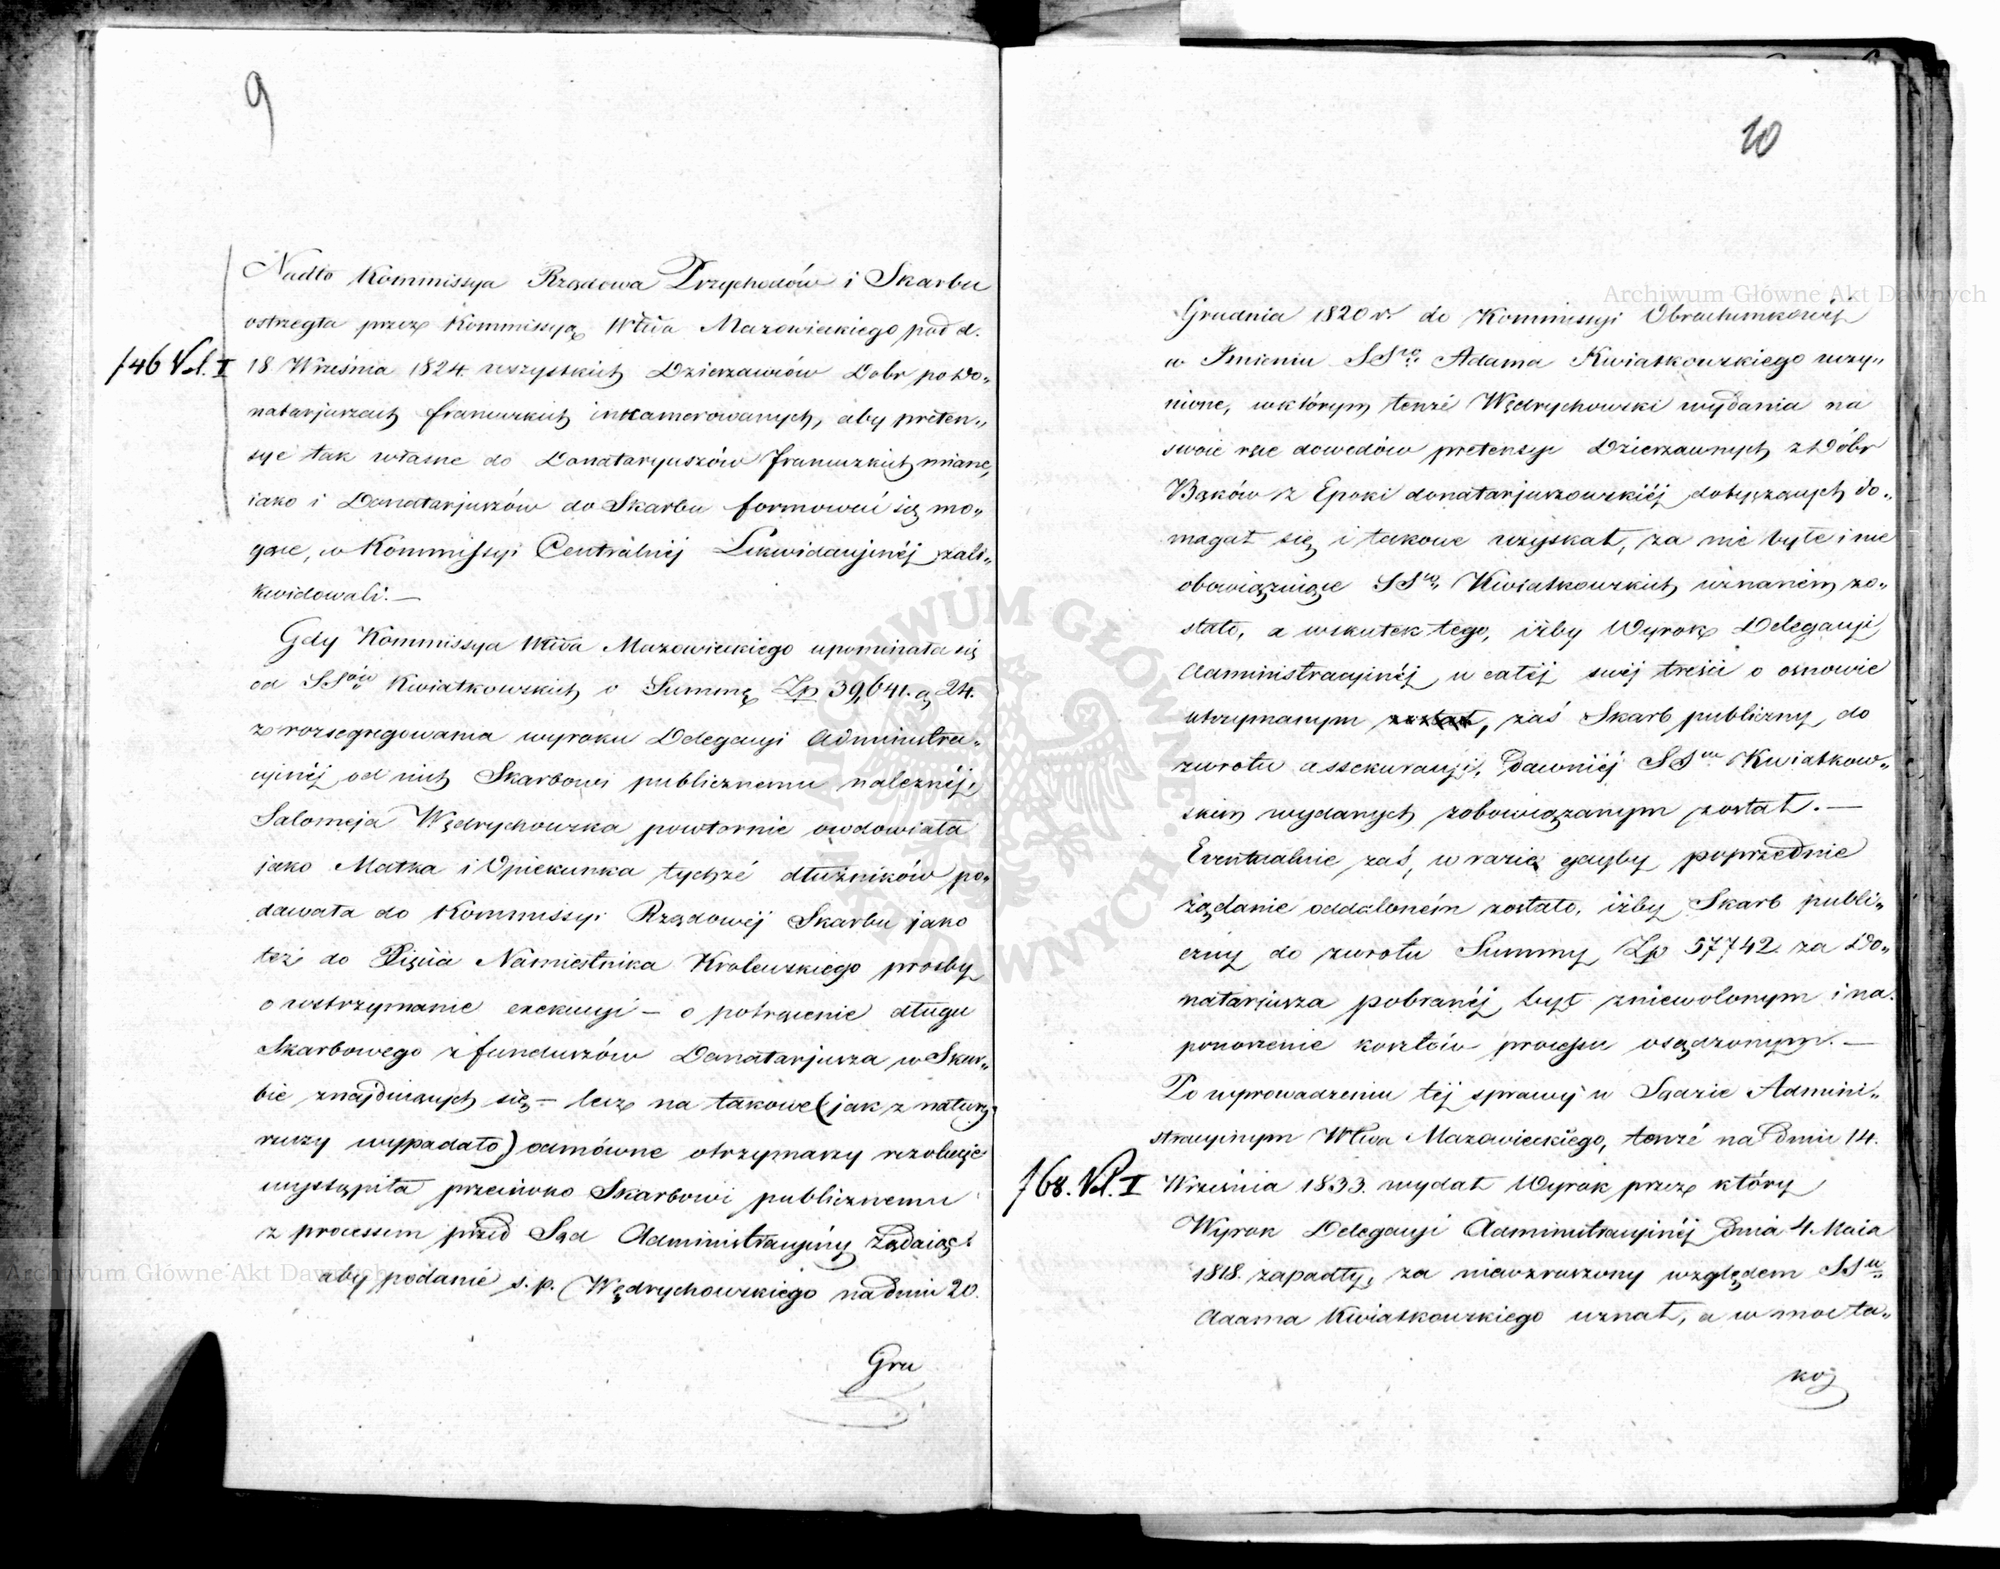 9
Nadto Kommissya Rządowa Przychodów i Skarbu
ostrzegła przez Kommissyą Wtwa Mazowieckiego pod d.
f 46 Vol. I
18 Września 1824. wszystkich Dzierzawców Dobr po Do„
natarjuszach francuzkich inkamerowanych, aby preten„
sye tak własne do Donataryuszów francuzkich miane,
iako i Donatarjuszów do Skarbu formować się mo„
gące, w Kommissyi Centralnéj Likwidacyjnéj zali„
kwidowali. —
Gdy Kommissya Wtwa Mazowieckiego upominała się
od SSów Kwiatkowskich o Summę Zp 39,641. g 24.
z rozsegregowania wyroku Delegacyi Administra„
cyjnéj od nich Skarbowi publicznemu należnéj,
Salomeja Wędrychowska powtornie owdowiała
jako Matka i Opiekunka tychże dłużników po„
dawała do Kommissyi Rządowéj Skarbu jako
też do Xięcia Namiestnika Krolewskiego prosby
o wstrzymanie exekucyi — o potrącenie długu
Skarbowego z funduszów Donatarjusza w Skar„
bie znajduiących się — lecz na takowe (jak z natury
rzeczy wypadało) odmówne otrzymawszy rezolucje
wystąpiła przeciwko Skarbowi publicznemu
z processem przed Sąd Administracyiny żądaiąc:
aby podanie s. p. Wędrychowskiego na dniu 20.
Gru
10
Archiwum Główne Akt Dawnych
Grudnia 1820 r. do Kommissyi Obrachunkowéj
w Imieniu SSra Adama Kwiatkowskiego uczy„
nione, w którym tenże Wędrychowski wydania na
swoie ręce dowodów pretensyi Dzierzawnych z Dóbr
Bąków z Epoki donatarjuszowskiéj dotyczących do„
magał się i takowe uzyskał, za nie byłe i nie
obowiązuiące SSrów Kwiatkowskich uznaném zo„
stało, a wskutek tego, iżby Wyrok Delegacyi
Administracyjnéj w całéj swéj treści o osnowie
utrzymanym, zaś Skarb publiczny do
zwrotu assekuracyi, dawniéj SSrom Kwiatkow„
skim wydanych zobowiązanym został. —
Eventualnie zaś, w razie gdyby poprzednie
żądanie oddaloném zostało, iżby Skarb publi„
czny do zwrotu Summy Zp 57742. za Do„
natarjusza pobranéj był zniewolonym i na
ponoszenie kosztów processu osądzonym. —
Po wprowadzeniu téj sprawy w Sądzie Admini„
stracyinym Wtwa Mazowieckiego, tenże na dniu 14.
f 68. Vol. I
Września 1833. wydał Wyrok przez który
Wyrok Delegacyi Administracyinéj dnia 4 Maia
1818. zapadły, za niewzruszony względem SSra
Adama Kwiatkowskiego uznał, a w moc ta„
kọj
Archiwum Główne Akt Dawnych
ARCHIWUM GŁÓWNE AKT DAWNYCH